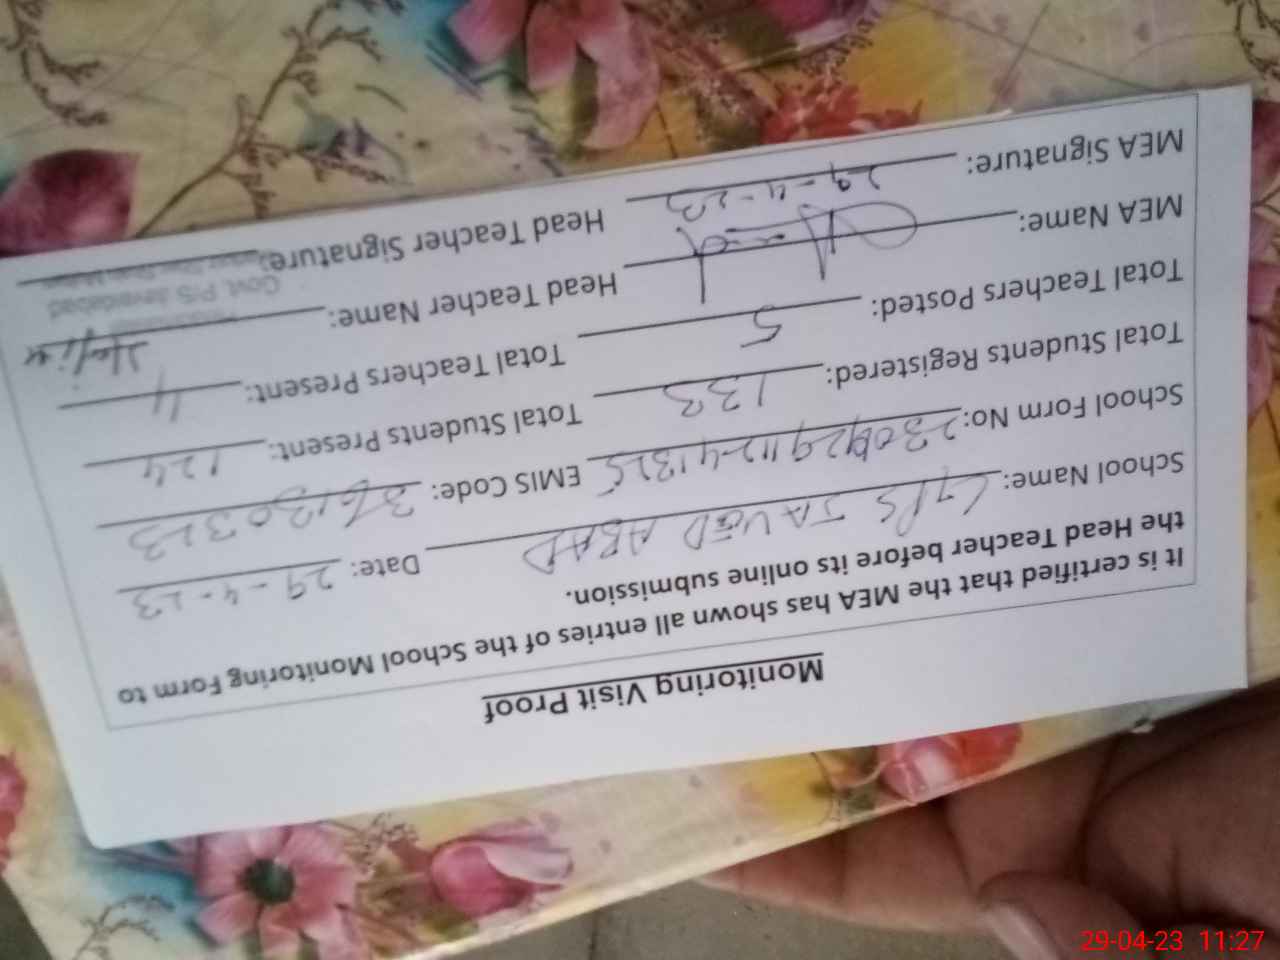 Monitoring Visit Proof
It is certified that the MEA has shown all entries of the School Monitoring Form to
the Head Teacher before its online submission.
School Name: GPS JAVED ABAD Date: 29-4-23
School Form No: EMIS Code: 36130313
Total Students Registered: 133 Total Students Present: 124
Total Teachers Posted: 5 Total Teachers Present: 4
MEA Name: Head Teacher Name:
Govt. P/S Javedabad
MEA Signature: 29-4-23 Head Teacher Signature:
29-04-23 11:27